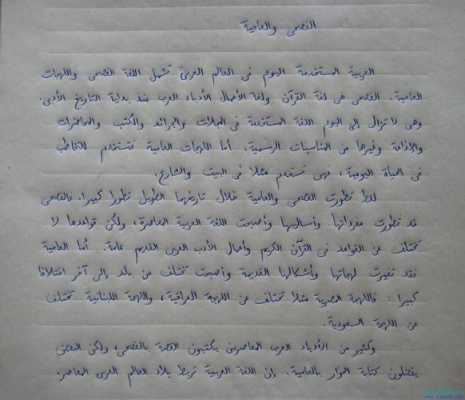 الفصحى والعامية
العربية المستخدمة اليوم فى العالم العربى تشمل اللغة الفصحى واللهجات
العامية. الفصحى هى لغة القرآن ولغة الأعمال الأدباء العرب منذ بداية التاريخ الأدبى
وهى لا تزال إلى اليوم اللغة المستخدمة فى المجلات والجرائد والكتب والمحاضرات
والإذاعة وغيرها من المناسبات الرسمية. أما اللهجات العامية فتستخدم للتخاطب
فى الحياة اليومية، فهى تستخدم مثلا فى البيت والشارع.
لقد تطورت الفصحى والعامية خلال تاريخها الطويل تطورا كبيرا، فالفصحى
قد تطورت مفرداتها وأساليبها وأصبحت اللغة العربية المعاصرة، ولكن قواعدها لا
تختلف عن القواعد فى القرآن الكريم وأعمال الأدب العربى القديم عامة. أما العامية
فقد تغيرت لهجاتها وأشكالها القديمة وأصبحت تختلف من بلد إلى آخر اختلافا
كبيرا. فاللهجة المصرية مثلا تختلف عن اللهجة العراقية، واللهجة اللبنانية تختلف
عن اللهجة السعودية.
وكثير من الأدباء العرب المعاصرين يكتبون القصة بالفصحى، ولكن البعض
يفضلون كتابة الحوار بالعامية. إن اللغة العربية تربط بلاد العالم العربى المعاصر.